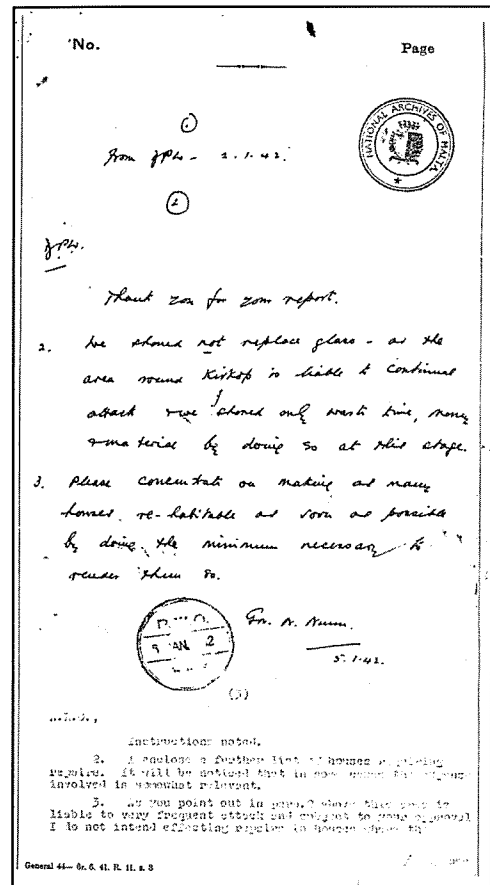 No. Page
NATIONAL ARCHIVES OF MALTA
1
from JPW - 2.1.42.
2
JPW.
Thank you for your report.
2. We should not replace glass - as the
area round Kirkop is liable to continual
attack & we should only waste time, money
& material by doing so at this stage.
3. Please concentrate on making as many
houses re-habitable as soon as possible
by doing the minimum necessary to
render them so.
5.1.42.
(3)
Instructions noted.
2. I enclose a further list of houses requiring
repairs. It will be noticed that in some cases the
involved is somewhat relevant.
3. As you point out in para.2 above this area is
liable to very frequent attack and subject to your approval
I do not intend effecting repairs in houses where the
General 44— 6r. 6. 41. R. 11. s. 3